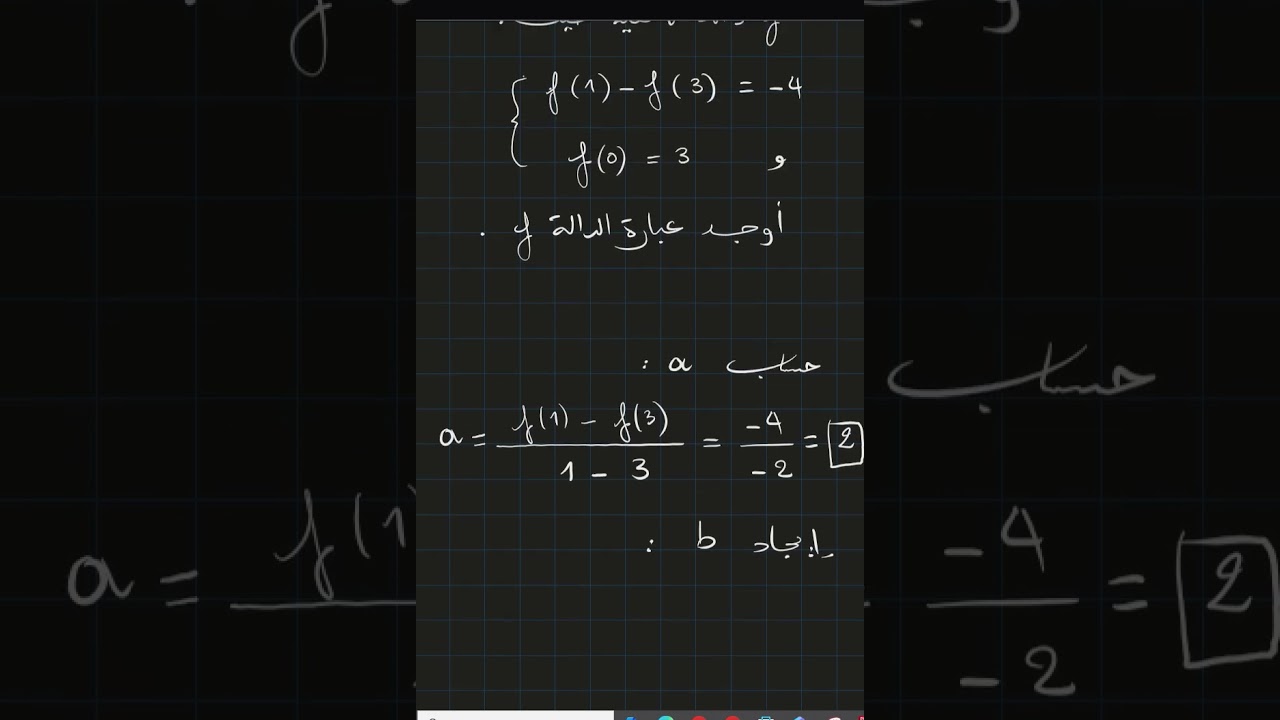 f(1) - f(3) = -4
و f(0) = 3
أوجد عبارة الدالة f .
حساب a :
a = \frac{f(1) - f(3)}{1 - 3} = \frac{-4}{-2} = 2
إيجاد b :